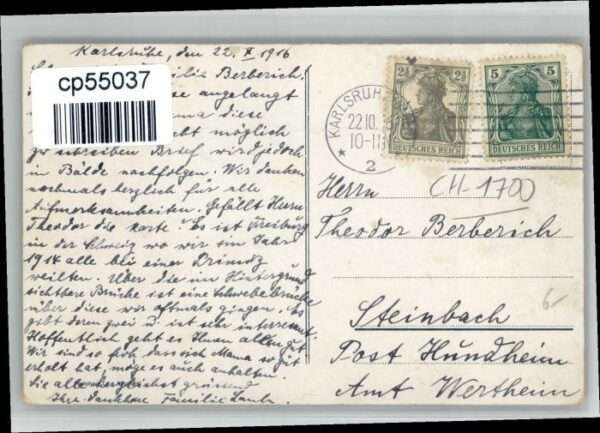 Karlsruhe, den 22. X 1916
Familie Berberich!
cp55037
angelangt
diese
nicht möglich
zu schreiben Brief wird jedoch
in Bälde nachfolgen. Wir danken
nochmals herzlich für alle
Aufmerksamkeiten. Gefällt Herrn
Theodor die Karte? Es ist Freiburg
in der Schweiz wo wir im Jahr
1914 alle bei einer Primiz
weilten. Über die im Hintergrund
sichtbare Brücke ist eine Schwebebrücke
über diese wir oftmals gingen. Es
gibt deren zwei u. ist sehr interessant.
Hoffentlich geht es Ihnen allen gut
Wir sind so froh dass sich Mama so gut
erholt hat, möge es auch anhalten.
Sie alle herzlichst grüssend
Ihre dankbare Familie
KARLSRUHE
22.10.
10-11
2
2½ 2½
DEUTSCHES REICH
5 5
DEUTSCHES REICH
Herrn
CH-1700
Theodor Berberich
6-
Steinbach
Post Hundheim
Amt Wertheim